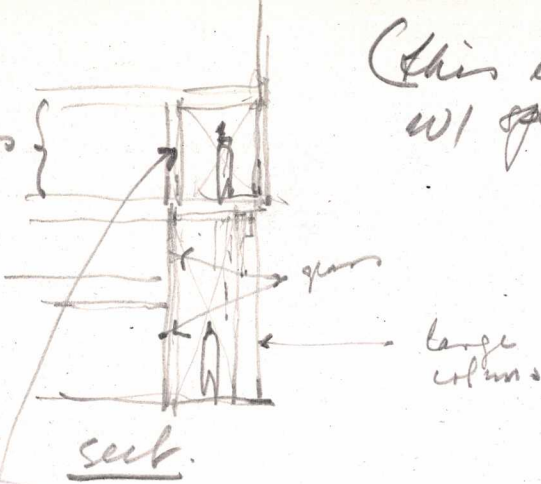 (this
w/
glass
large
columns
sect.